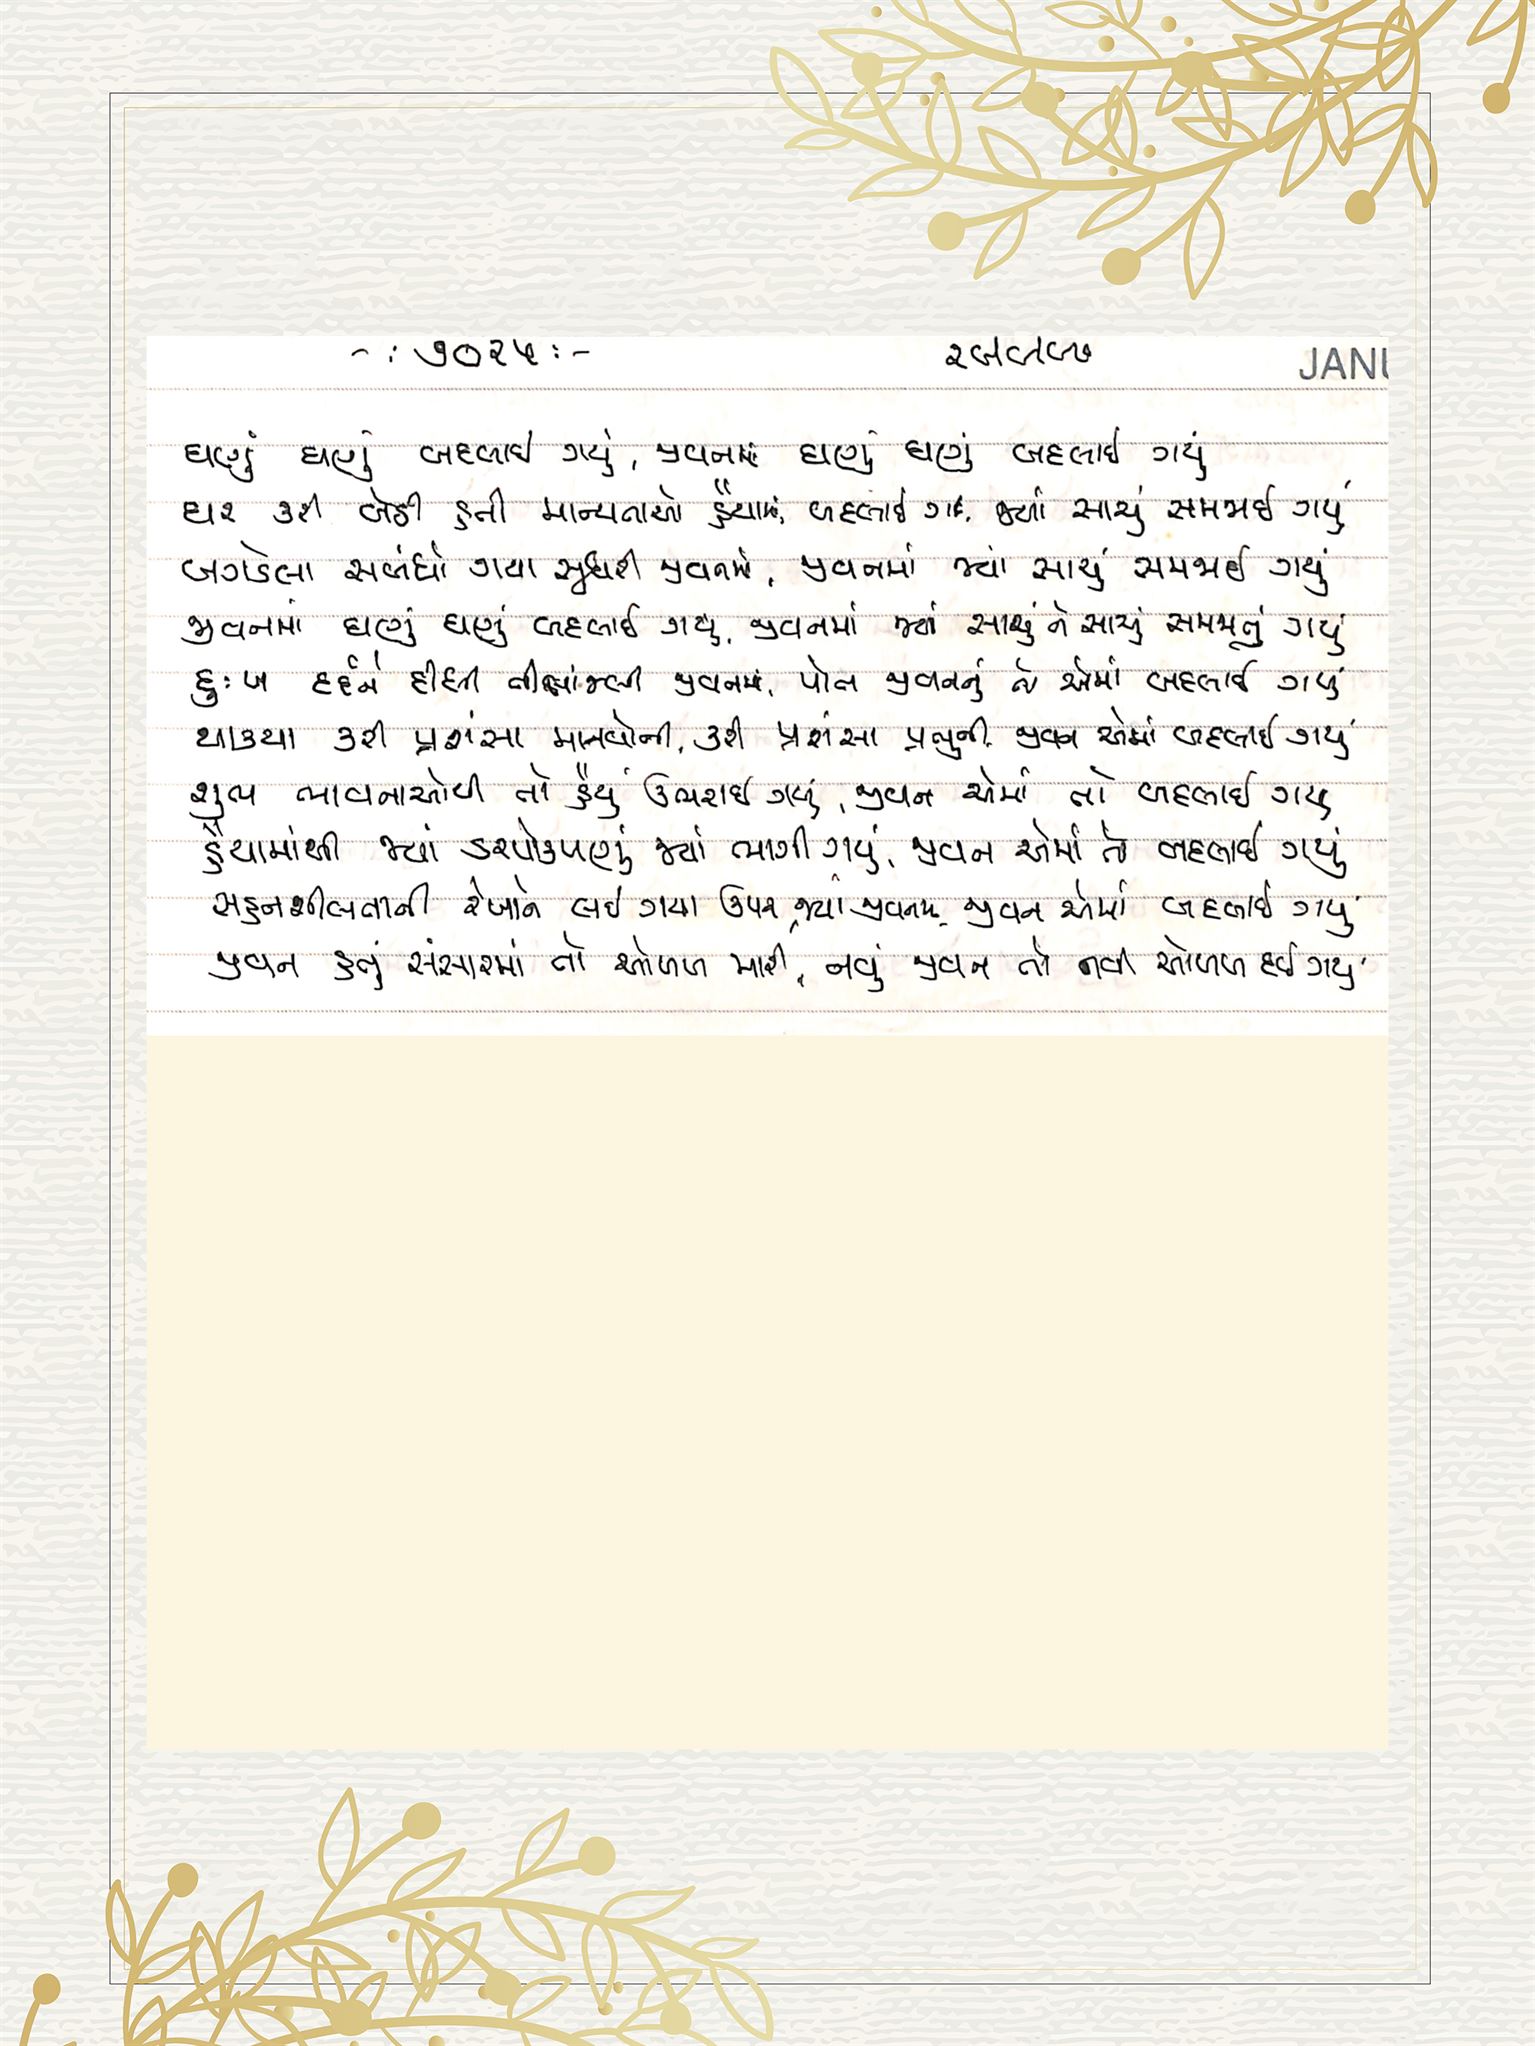 -: ૭૦૨૫ :- JANU
ઘણું ઘણું બદલાઈ ગયું, જીવનમાં ઘણું ઘણું બદલાઈ ગયું
ઘર કરી બેઠી હતી માન્યતાઓ હૈયામાં, બદલાઈ ગઈ, જ્યાં સાચું સમજાઈ ગયું
બગડેલા સબંધો ગયા સુધરી જીવનમાં, જીવનમાં જ્યાં સાચું સમજાઈ ગયું
જીવનમાં ઘણું ઘણું બદલાઈ ગયું, જીવનમાં જ્યાં સાચું ને સાચું સમજાતું ગયું
દુઃખ દર્દને દીધી જીવનમાં, પોત જીવનનું જે એમાં બદલાઈ ગયું
થાક્યા કરી પ્રશંસા માનવોની, કરી પ્રશંસા પ્રભુની જીવન એમાં બદલાઈ ગયું
શુભ ભાવનાઓથી તો હૈયું ઉભરાઈ ગયું, જીવન એમાં તો બદલાઈ ગયું
હૈયામાંથી જ્યાં ડરપોકપણું જ્યાં ભાગી ગયું, જીવન એમાં તો બદલાઈ ગયું
સહનશીલતાની રેખાને લઈ ગયા ઉપર જ્યાં જીવનમાં, જીવન એમાં બદલાઈ ગયું
જીવન હતું સંસારમાં તો ઓળખ મારી, નવું જીવન તો નવી ઓળખ દઈ ગયું